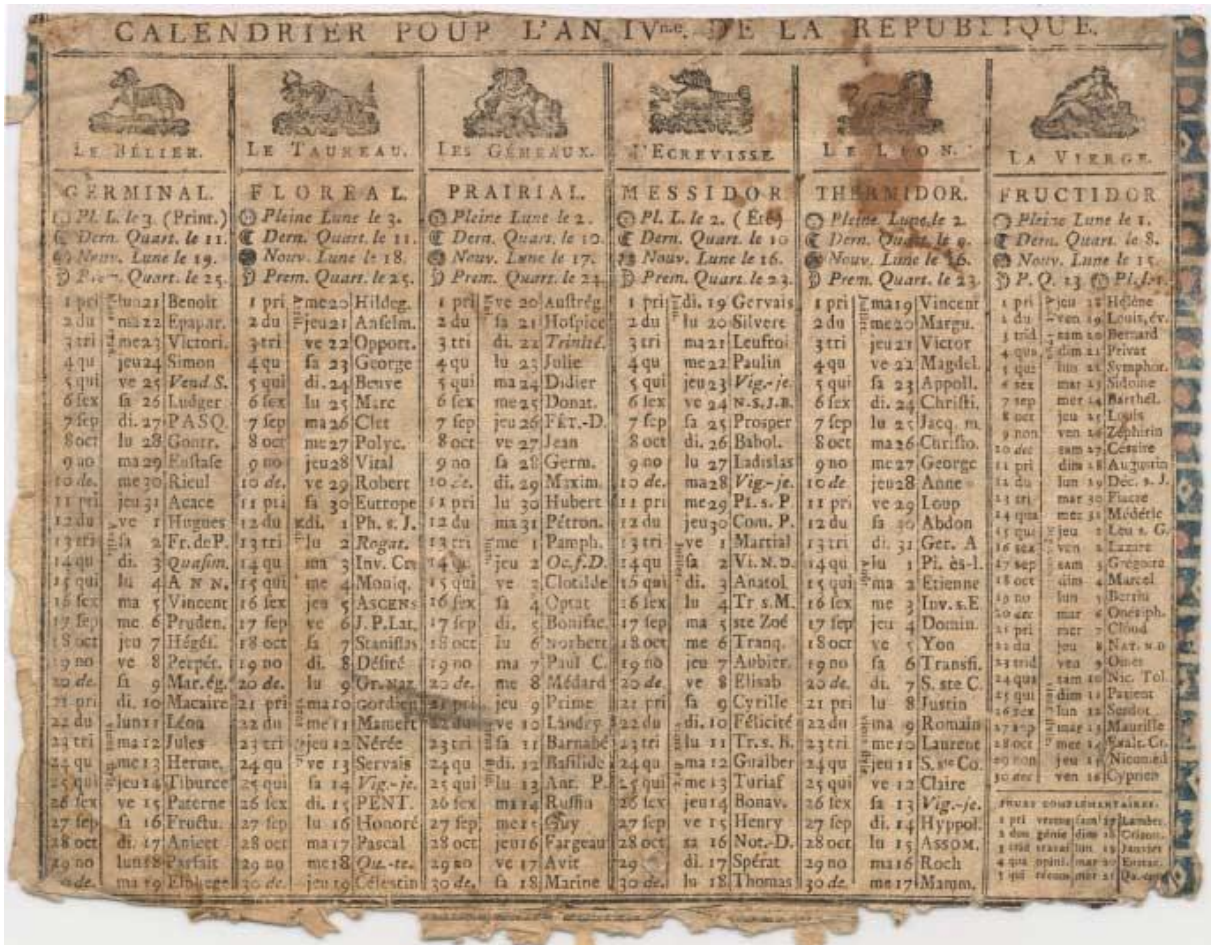 CALENDRIER POUR L'AN IVme. DE LA REPUBLIQUE.
LE BÉLIER.
GERMINAL.
Pl. L. le 3. (Print.)
Dern. Quart. le 11.
Nouv. Lune le 19.
Prem. Quart. le 25.
1 pri lun 21 Benoît
2 du ma 22 Epapar.
3 tri me 23 Victori.
4 qu jeu 24 Simon
5 qui ve 25 Vend S.
6 sex sa 26 Ludger
7 sep di. 27 PASQ.
8 oct lu 28 Gontr.
9 no ma 29 Eustase
10 de. me 30 Rieul
11 pri jeu 31 Acace
12 du ve 1 Hugues
13 tri sa 2 Fr. de P.
14 qu di. 3 Quasim.
15 qui lu 4 ANN.
16 sex ma 5 Vincent
17 sep me 6 Pruden.
18 oct jeu 7 Hégés.
19 no ve 8 Perpét.
20 de. sa 9 Mar. ég.
21 pri di. 10 Macaire
22 du lun 11 Léon
23 tri ma 12 Jules
24 qu me 13 Herme.
25 qui jeu 14 Tiburce
26 sex ve 15 Paterne
27 sep sa 16 Fructu.
28 oct di. 17 Anicet
29 no lun 18 Parfait
30 de. ma 19 Elphege
LE TAUREAU.
FLOREAL.
Pleine Lune le 3.
Dern. Quart. le 11.
Nouv. Lune le 18.
Prem. Quart. le 25.
1 pri me 20 Hildeg.
2 du jeu 21 Anselm.
3 tri ve 22 Opport.
4 qu sa 23 George
5 qui di. 24 Beuve
6 sex lu 25 Marc
7 sep ma 26 Clet
8 oct me 27 Polyc.
9 no jeu 28 Vital
10 de. ve 29 Robert
11 pri sa 30 Eutrope
12 du di. 1 Ph. s. J.
13 tri lu 2 Rogat.
14 qu ma 3 Inv. Cre
15 qui me 4 Moniq.
16 sex jeu 5 ASCENS
17 sep ve 6 J.P.Lat.
18 oct sa 7 Stanislas
19 no di. 8 Désiré
20 de. lu 9 Gr. NAZ
21 pri ma 10 Gordien
22 du me 11 Mamert
23 tri jeu 12 Nérée
24 qu ve 13 Servais
25 qui sa 14 Vig.-je.
26 sex di. 15 PENT.
27 sep lu 16 Honoré
28 oct ma 17 Pascal
29 no me 18 Qu.-te.
30 de. jeu 19 Célestin
LES GÉMEAUX.
PRAIRIAL.
Pleine Lune le 2.
Dern. Quart. le 10.
Nouv. Lune le 17.
Prem. Quart. le 24.
1 pri ve 20 Austrég.
2 du sa 21 Hospice
3 tri di. 22 Trinité.
4 qu lu 23 Julie
5 qui ma 24 Didier
6 sex me 25 Donat.
7 sep jeu 26 FÊT.-D.
8 oct ve 27 Jean
9 no sa 28 Germ.
10 de. di. 29 Maxim.
11 pri lu 30 Hubert
12 du ma 31 Pétron.
13 tri me 1 Pamph.
14 qu jeu 2 Oc.f.D.
15 qui ve 3 Clotilde
16 sex sa 4 Optat
17 sep di. 5 Boniface.
18 oct lu 6 Norbert
19 no ma 7 Paul C.
20 de. me 8 Médard
21 pri jeu 9 Prime
22 du ve 10 Landry
23 tri sa 11 Barnabé
24 qu di. 12 Basilide
25 qui lu 13 Ant. P.
26 sex ma 14 Ruffin
27 sep me 15 Guy
28 oct jeu 16 Fargeau
29 no ve 17 Avit
30 de. sa 18 Marine
L'ECREVISSE
MESSIDOR
Pl. L. le 2. (Été)
Dern. Quart. le 10
Nouv. Lune le 16.
Prem. Quart. le 23.
1 pri di. 19 Gervais
2 du lu 20 Silvere
3 tri ma 21 Leufroi
4 qu me 22 Paulin
5 qui jeu 23 Vig.-je.
6 sex ve 24 N.S.J.B.
7 sep sa 25 Prosper
8 oct di. 26 Babol.
9 no lu 27 Ladislas
10 de. ma 28 Vig-je.
11 pri me 29 Pi. s. P
12 du jeu 30 Com. P.
13 tri ve 1 Martial
14 qu sa 2 Vi. N. D.
15 qui di. 3 Anatol
16 sex lu 4 Tr s.M.
17 sep ma 5 ste Zoé
18 oct me 6 Tranq.
19 no jeu 7 Aubier.
20 de. ve 8 Elisab
21 pri sa 9 Cyrille
22 du di. 10 Félicité
23 tri lu 11 Tr. s. B.
24 qu ma 12 Gualber
25 qui me 13 Turiaf
26 sex jeu 14 Bonav.
27 sep ve 15 Henry
28 oct sa 16 Not.-D.
29 di. 17 Spérat
30 de. lu 18 Thomas
LE LION.
THERMIDOR.
Pleine Lune. le 2.
Dern. Quart. le 9.
Nouv. Lune le 16.
Prem. Quart. le 23.
1 pri ma 19 Vincent
2 du me 20 Margu.
3 tri jeu 21 Victor
4 qu ve 22 Magdel.
5 qui sa 23 Appoll.
6 sex di. 24 Christi.
7 sep lu 25 Jacq. m.
8 oct ma 26 Christo.
9 no me 27 George
10 de jeu 28 Anne
11 pri ve 29 Loup
12 du sa 30 Abdon
13 tri di. 31 Ger. A
14 qu lu 1 Pi. ès-l.
15 qui ma 2 Etienne
16 sex me 3 Inv. s.E
17 sep jeu 4 Domin.
18 oct ve 5 Yon
19 no sa 6 Transfi.
20 de. di. 7 S. ste C.
21 pri lu 8 Justin
22 du ma 9 Romain
23 tri me 10 Laurent
24 qu jeu 11 S. ste Co.
25 qui ve 12 Claire
26 sex sa 13 Vig.-je.
27 sep di. 14 Hyppol.
28 oct lu 15 ASSOM.
29 no ma 16 Roch
30 de. me 17 Mamm.
LA VIERGE.
FRUCTIDOR
Pleine Lune le 1.
Dern. Quart. le 8.
Nouv. Lune le 15
P. Q. 13
1 pri jeu 18 Hélène
2 du ven 19 Louis, év.
3 trid sam 20 Bernard
4 qua dim 21 Privat
5 qui lun 22 Symphor.
6 sex mar 23 Sidoine
7 sep mer 24 Barthél.
8 oct jeu 25 Louis
9 non ven 26 Zéphirin
10 dec sam 27 Césaire
11 pri dim 28 Augustin
12 du lun 29 Déc. s. J.
13 tri mar 30 Fiacre
14 qua mer 31 Médéric
15 qui jeu 1 Leu s. G.
16 sex ven 2 Lazare
17 sep sam 3 Grégoire
18 oct dim 4 Marcel
19 no lun 5 Bertin
20 dec mar 6 Onésiph.
21 pri mer 7 Cloud
22 du jeu 8 NAT. N.D
23 trid ven 9 Omer
24 qua sam 10 Nic. Tol
25 qui dim 11 Patient
26 sex lun 12 Serdot
27 sep mar 13 Maurille
28 oct mer 14 Exalt. Cr.
29 non jeu 15 Nicomed
30 dec ven 16 Cyprien
JOURS COMPLÉMENTAIRES.
1 pri vertu sam 17 Lamber.
2 duo génie dim 18
3 trid travai lun 19 Janvier
4 qua opini. mar 20 Eustac.
5 qui récom mer 21